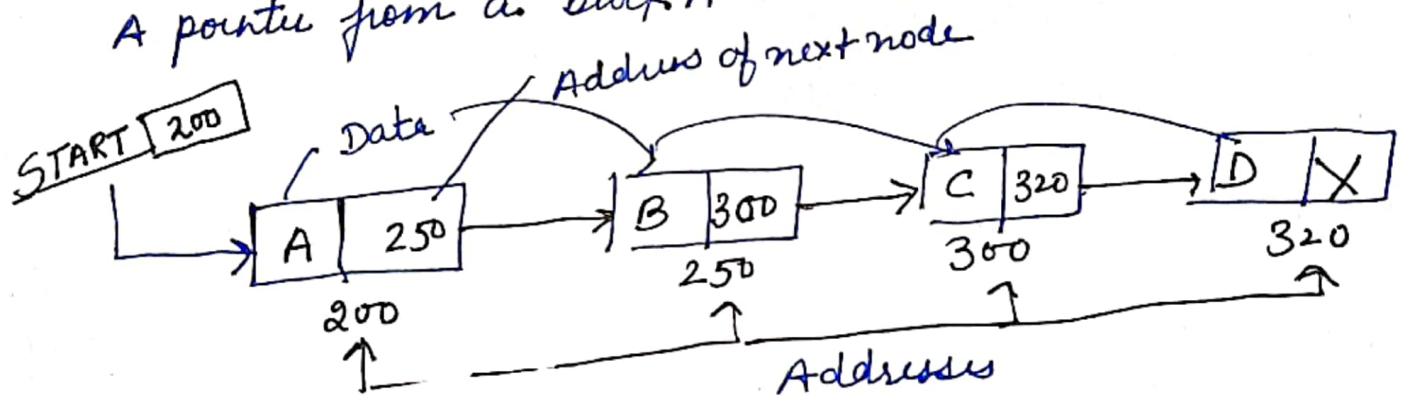 A pointer from a
Address of next node
START 200
Data
A 250
B 300
C 320
D X
200
250
300
320
Addresses